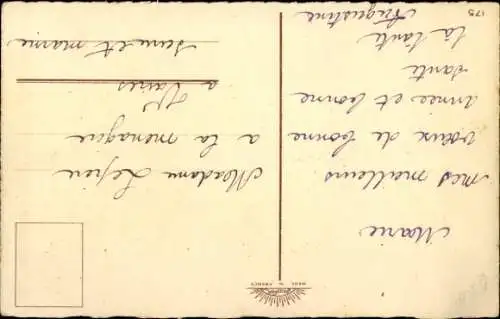 Marie
mes meilleurs
vœux de bonne
année et bonne
santé
La tante
Augustine
Madame Lepien
a la menagerie
a Vaires
Seine et marne
MADE IN FRANCE
175